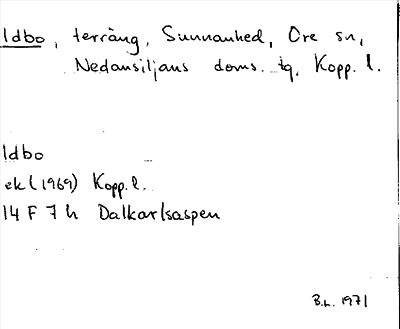 Idbo, terräng, Sunnanhed, Ore sn,
Nedansiljans doms. tg, Kopp. l.
Idbo
ek (1969) Kopp. l.
14 F 7 h Dalkarlsaspen
B.L. 1971